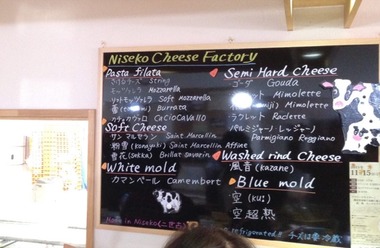 Niseko Cheese Factory
Pasta filata
さけるチーズ String
モッツァレラ Mozzarella
Soft Mozzarella
蕾(tsubomi) Burrata
カチョカヴァロ CaCioCaVallo
Soft Cheese
サン マルセラン Saint Marcellin
粉雪 (konayuki) Saint Marcellin Affine
雪花 (sekka) Brillat Savarin
White mold
カマンベール Camembert
Made in Niseko(ニセコ)
Semi Hard Cheese
ゴーダ Gouda
ミモレット Mimolette
Mimolette
ラクレット Raclette
パルミジャーノ・レッジャーノ
Parmigiano Reggiano
Washed rind Cheese
風音 (kazane)
Blue mold
空 (ku:)
空 超熟
refrigerated!! チーズは要冷蔵
11/15